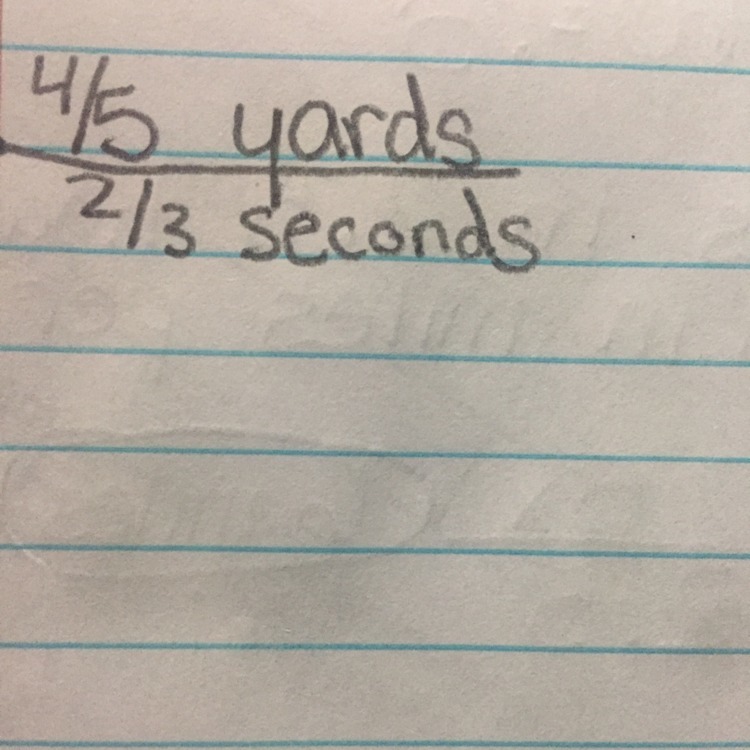 4/5 yards
2/3 seconds